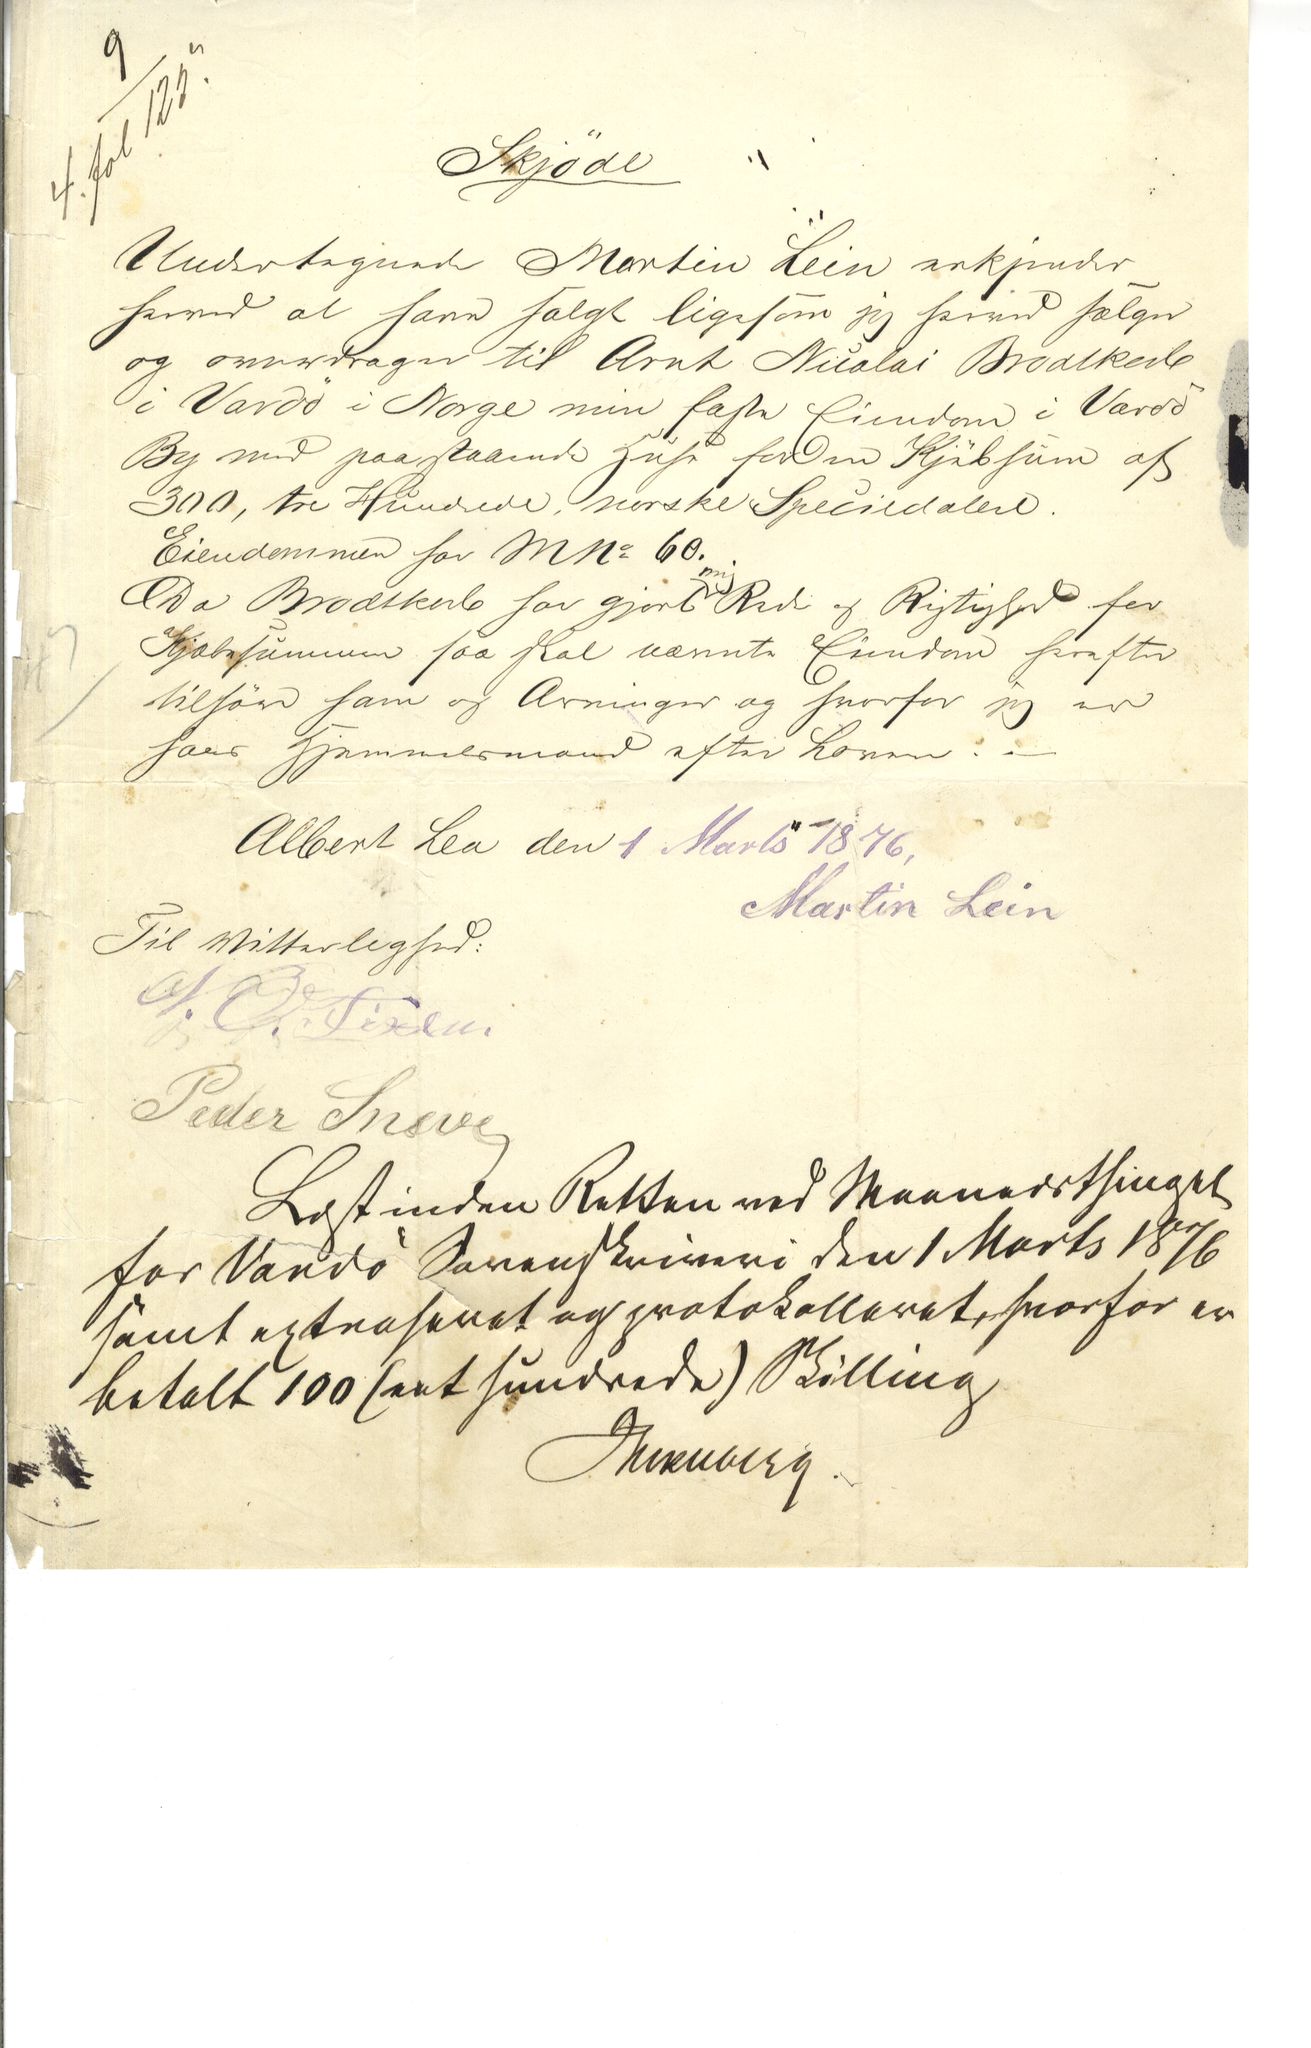 9
4. fol 122.
Skjöde
Undertegnede Martin Lein erkjender
herved at have solgt ligesom jeg herved sælger
og overdrager til Arnt Nicolai Brodtkorb
i Vardö i Norge min faste Eiendom i Vardö
By med paastaaende Huse for en Kjöbsum af
300, tre Hundrede, norske Speciedalere.
Eiendommen har M No 60.
Da Brodtkorb har gjort mig Rede og Rigtighed for
Kjöbesummen saa skal nævnte Eiendom herefter
tilhöre ham og Arvinger og hvorfor jeg er
hans Hjemmelsmand efter Loven. —
Albert Lea den 1 Marts 1876,
Martin Lein
Til Vitterlighed:
Peder Sneve
Læst inden Retten ved Maanedsthinget
for Vardö Sorenskriveri den 1 Marts 1876
samt extraheret og protokolleret, hvorfor er
betalt 100 (eet hundrede) Skilling